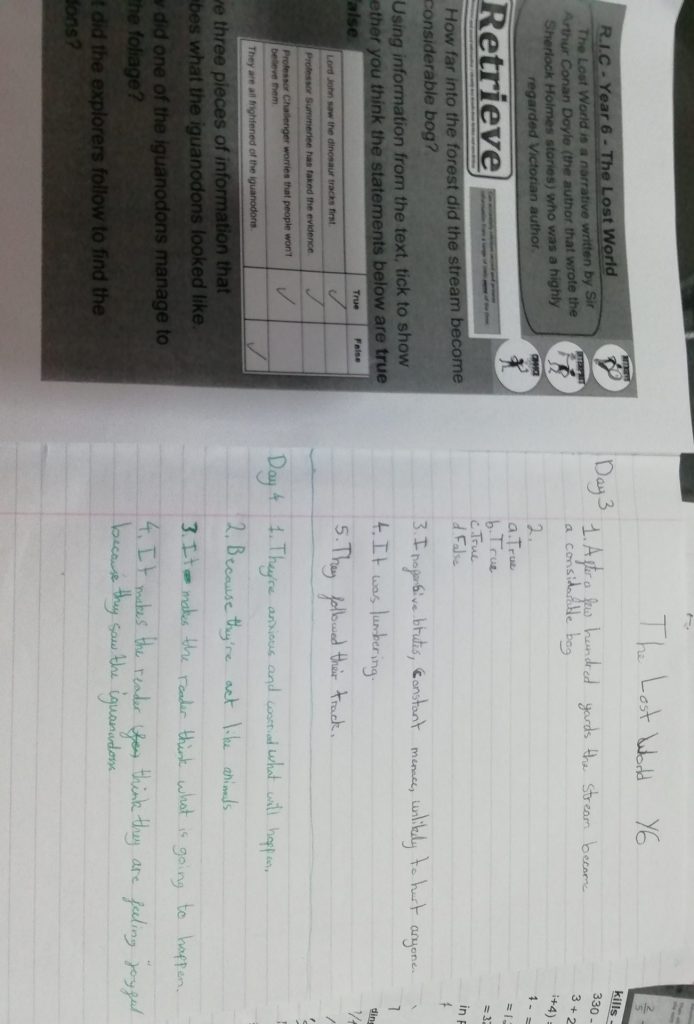 R.I.C - Year 6 - The Lost World
The Lost World is a narrative written by Sir
Arthur Conan Doyle (the author that wrote the
Sherlock Holmes stories) who was a highly
regarded Victorian author.
Retrieve
How far into the forest did the stream become
considerable bog?
Using information from the text, tick to show
ether you think the statements below are true
false
True False
Lord John saw the dinosaur tracks first. ✓
Professor Summerlee has faked the evidence. ✓
Professor Challenger worries that people won't
believe them. ✓
They are all frightened of the iguanodons. ✓
ve three pieces of information that
bes what the iguanodons looked like.
w did one of the iguanodons manage to
the foliage?
t did the explorers follow to find the
dons?
The Lost World Y6
Day 3
1. After a few hundred yards the stream became
a considerable bog
2.
a. True
b. True
c. True
d False
3. Inoffensive brutes, Constant menace, unlikely to hurt anyone.
4. It was lumbering.
5. They followed their track.
Day 4 1. They're anxious and worried what will happen.
2. Because they're act like animals
3. It makes the reader think what is going to happen.
4. It makes the reader think they are feeling
because they saw the iguanodons
kills
330 -
3 + 2